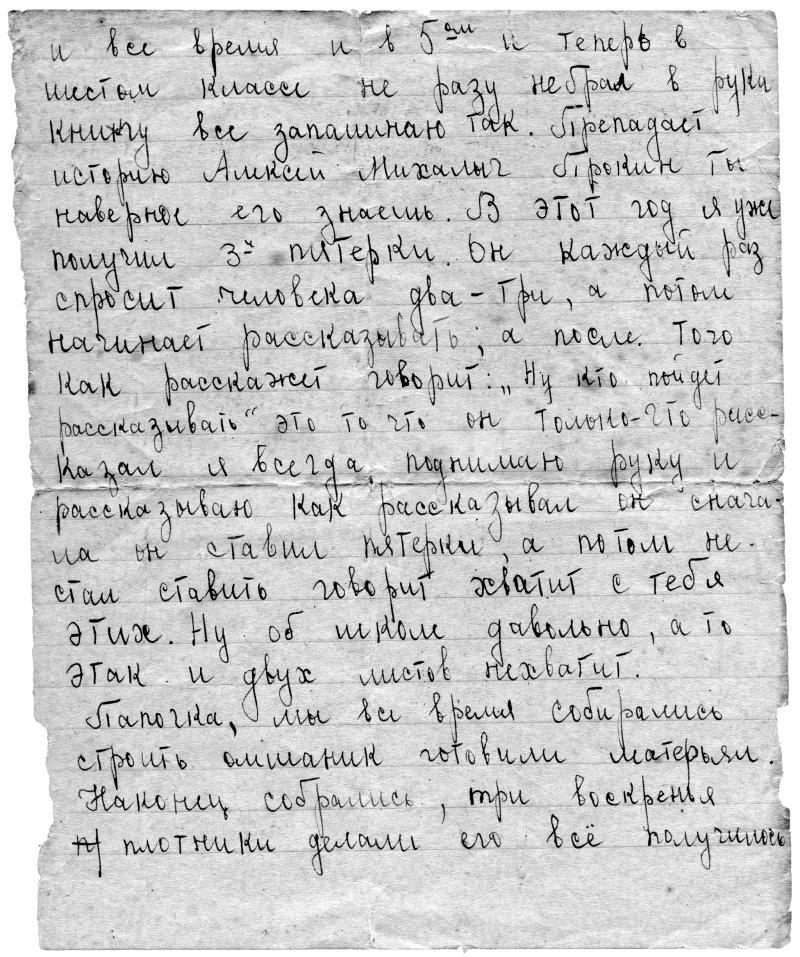 и все время и в 5ом и теперь в
шестом классе не разу небрал в руки
книгу все запаминаю так. Препадает
историю Алексей Михалыч Прокин ты
наверное его знаешь. В этот год я уже
получил 3и пятерки. Он каждый раз
спросит человека два-три, а потом
начинает рассказывать; а после. Того
как расскажет говорит: „Ну кто пойдет
рассказывать“ это то что он только-что расс-
казал я всегда поднимаю руку и
рассказываю как рассказывал он снача-
ла он ставил пятерки, а потом не-
стал ставить говорит хватит с тебя
этих. Ну об школе давольно, а то
этак и двух листов нехватит.
Папочка, мы все время собирались
строить омшаник готовили матерьял.
Наконец собрались, три воскренья
плотники делали его всё получилось